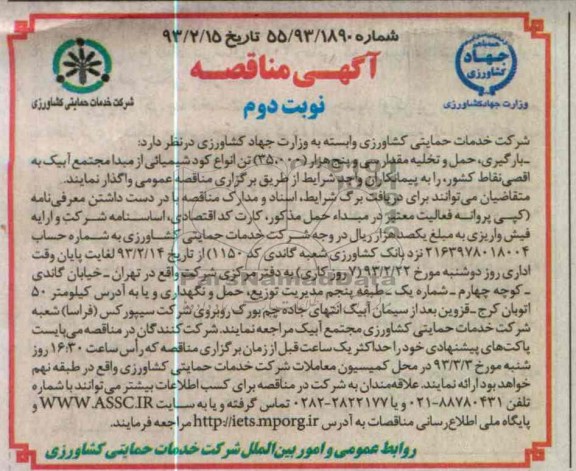 شماره ۵۵/۹۳/۱۸۹۰ تاریخ ۹۳/۲/۱۵
آگهی مناقصه
نوبت دوم
جهاد کشاورزی
وزارت جهاد کشاورزی
شرکت خدمات حمایتی کشاورزی
شرکت خدمات حمایتی کشاورزی وابسته به وزارت جهاد کشاورزی در نظر دارد:
ـ بارگیری، حمل و تخلیه مقدار سی و پنج هزار (۳۵۰۰۰) تن انواع کود شیمیائی از مبدا مجتمع آبیک به
اقصی نقاط کشور، را به پیمانکاران واجد شرایط از طریق برگزاری مناقصه عمومی واگذار نمایند.
متقاضیان می‌توانند برای دریافت برگ شرایط، اسناد و مدارک مناقصه با در دست داشتن معرفی‌نامه
(کپی پروانه فعالیت معتبر در مبداء حمل مذکور، کارت کد اقتصادی، اساسنامه شرکت و ارایه
فیش واریزی به مبلغ یکصد هزار ریال در وجه شرکت خدمات حمایتی کشاورزی به شماره حساب
۲۱۶۳۹۷۸۰۱۸۰۰۴ نزد بانک کشاورزی شعبه گاندی کد ۱۱۵۰) از تاریخ ۹۳/۲/۱۴ لغایت پایان وقت
اداری روز دوشنبه مورخ ۹۳/۲/۲۲ (۷ روز کاری) به دفتر مرکزی شرکت واقع در تهران ـ خیابان گاندی
ـ کوچه چهارم ـ شماره یک ـ طبقه پنجم مدیریت توزیع، حمل و نگهداری و یا به آدرس کیلومتر ۵۰
اتوبان کرج ـ قزوین بعد از سیمان آبیک انتهای جاده چم بورک روبروی شرکت سیپورکس (فراسا) شعبه
شرکت خدمات حمایتی کشاورزی مجتمع آبیک مراجعه نمایند. شرکت کنندگان در مناقصه می‌بایست
پاکت‌های پیشنهادی خود را حداکثر یک ساعت قبل از زمان برگزاری مناقصه که رأس ساعت ۱۶:۳۰ روز
شنبه مورخ ۹۳/۳/۳ در محل کمیسیون معاملات شرکت خدمات حمایتی کشاورزی واقع در طبقه نهم
خواهد بود ارائه نمایند. علاقه‌مندان به شرکت در مناقصه برای کسب اطلاعات بیشتر می‌توانند با شماره
تلفن ۸۸۷۸۰۴۳۱-۰۲۱ و یا ۲۸۲۲۱۷۷-۰۲۸۲ تماس گرفته و یا به سایت WWW.ASSC.IR و
پایگاه ملی اطلاع‌رسانی مناقصات به آدرس http://iets.mporg.ir مراجعه فرمایند.
روابط عمومی و امور بین‌الملل شرکت خدمات حمایتی کشاورزی